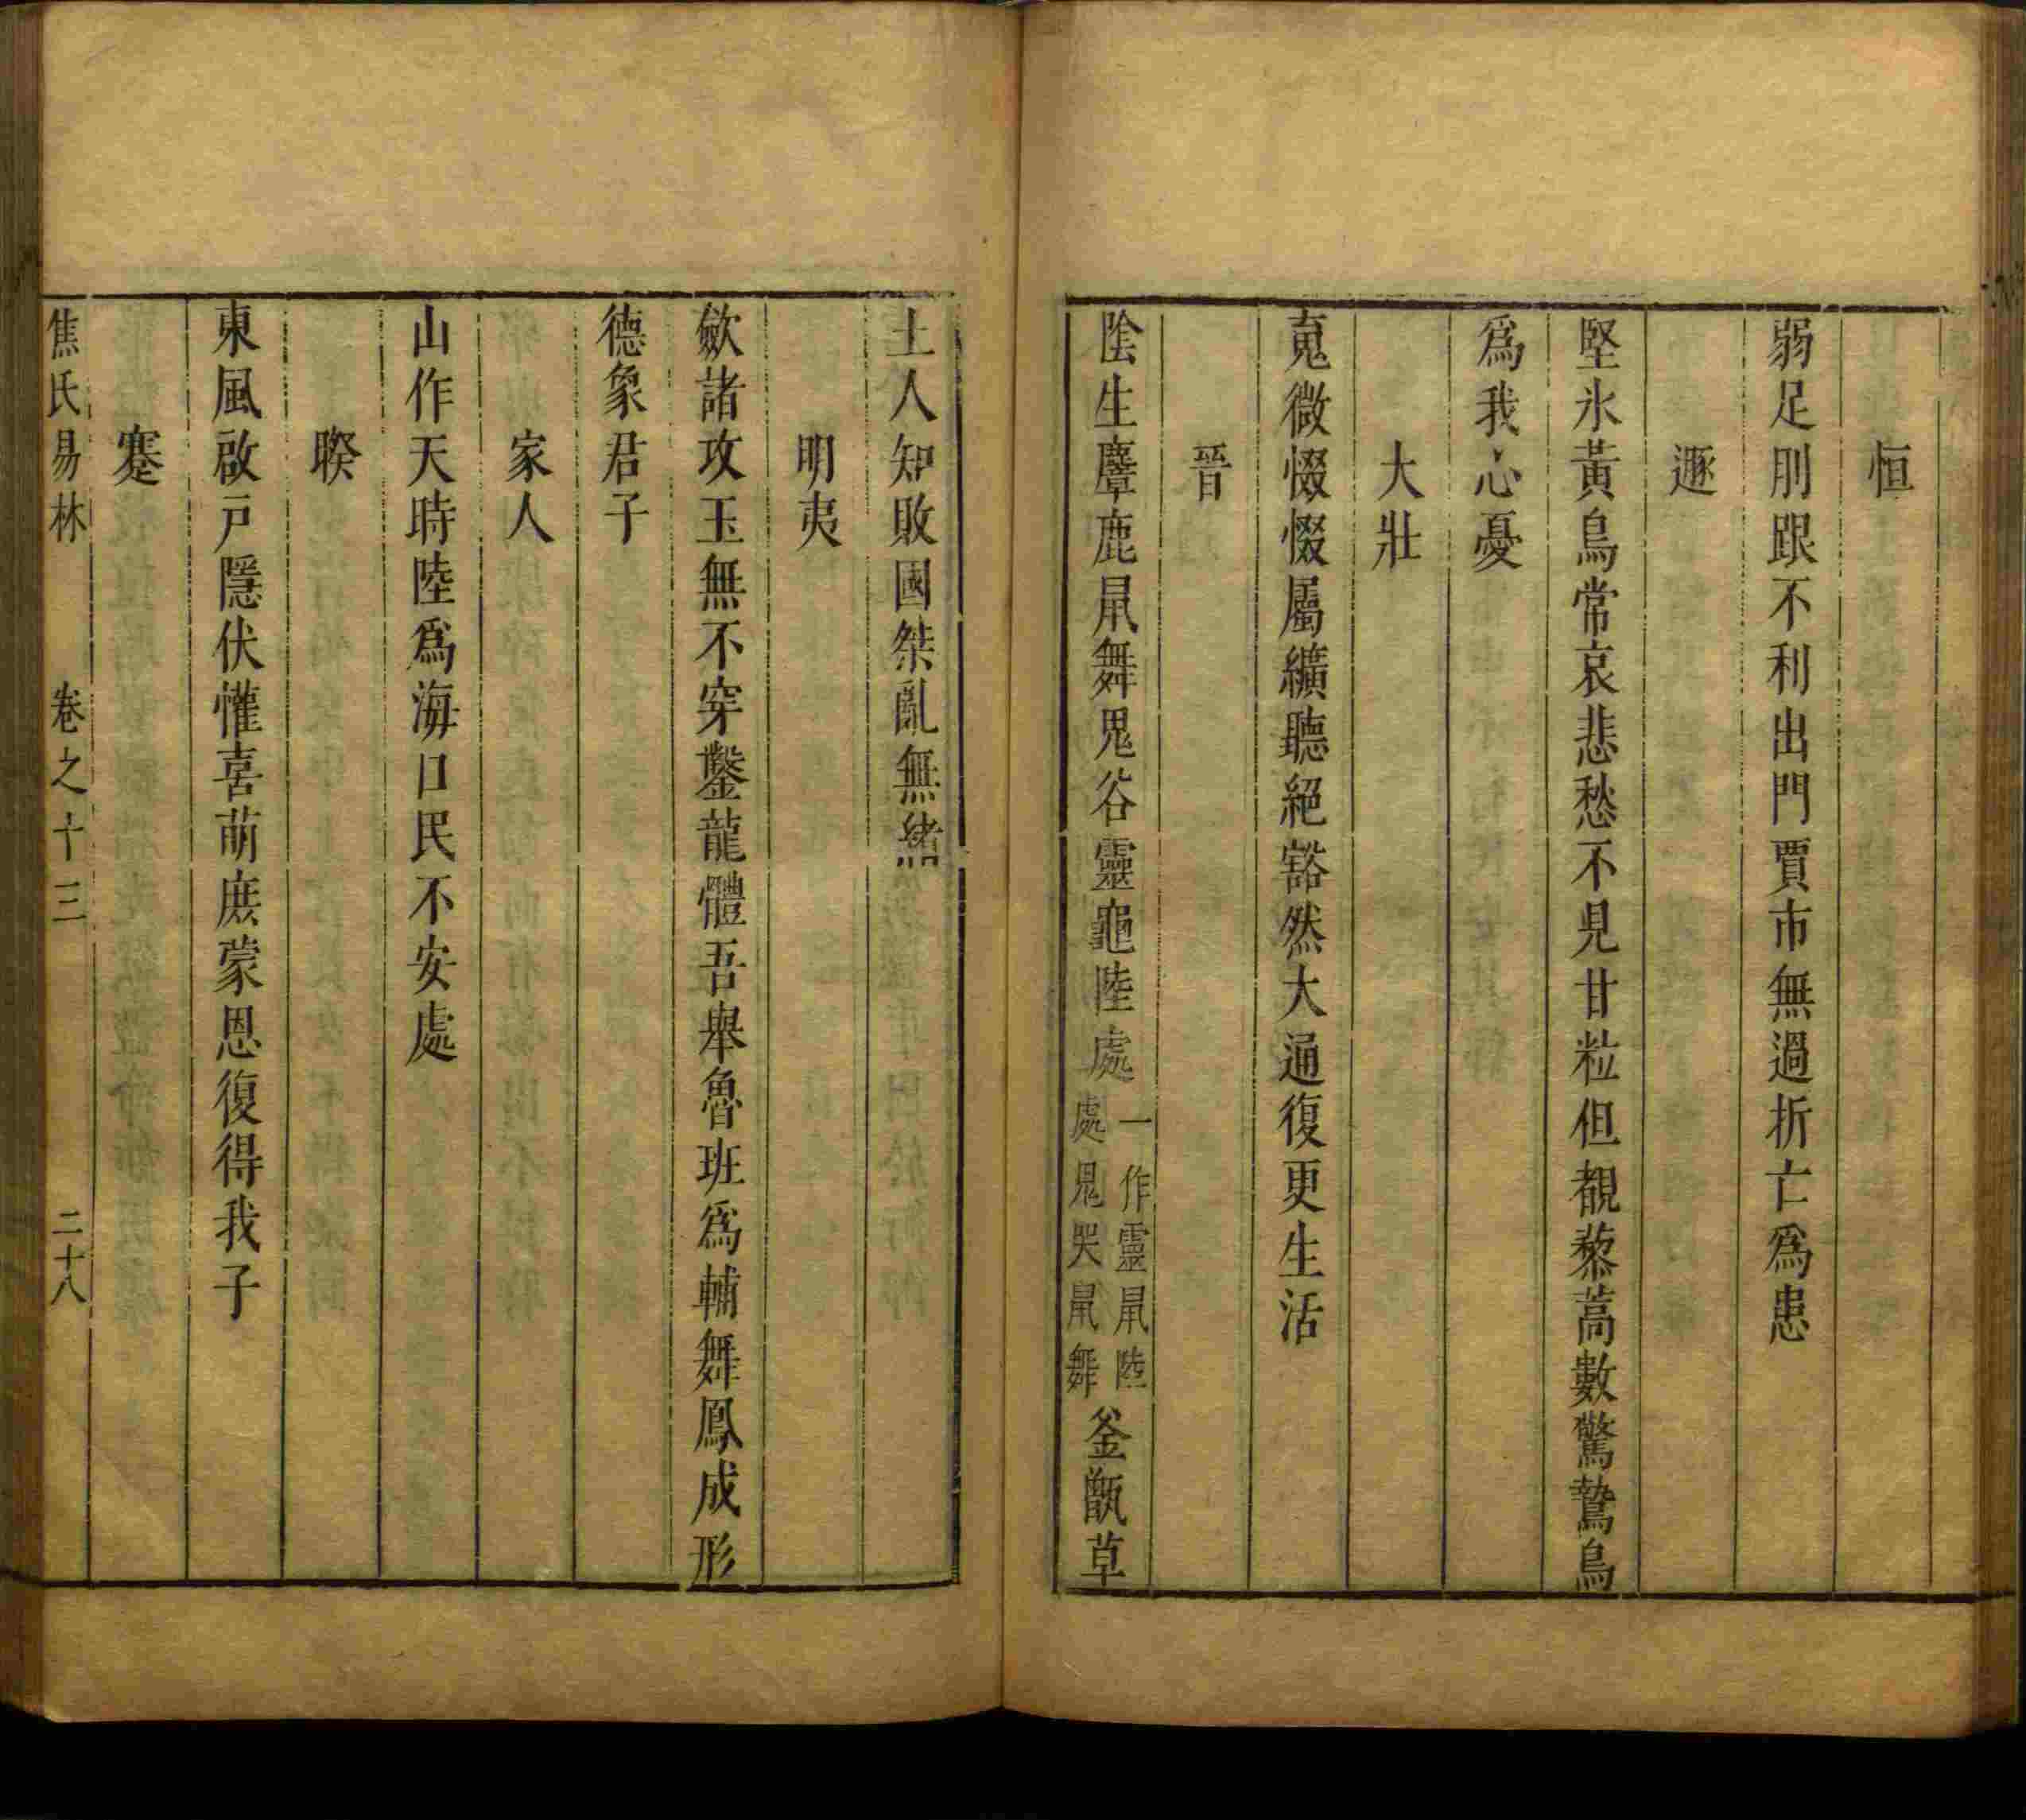 恒
弱足刖跟不利出門賈市無過折亡爲患
遯
堅氷黃鳥常哀悲愁不見甘粒但覩藜蒿數驚鷙鳥
爲我心憂
大壯
䰟微惙惙屬纊聽絕豁然大通復更生活
晉
陰生麞鹿鼠舞鬼谷靈龜陸處一作靈鼠陸處鬼哭鼠舞釜甑草
土人知敗國桀亂無緒
明夷
歛諸攻玉無不穿鑿龍體吾舉魯班爲輔舞鳳成形
德象君子
家人
山作天時陸爲海口民不安處
睽
東風啟戸隱伏懽喜萌庶蒙恩復得我子
蹇
焦氏易林 卷之十三 二十八